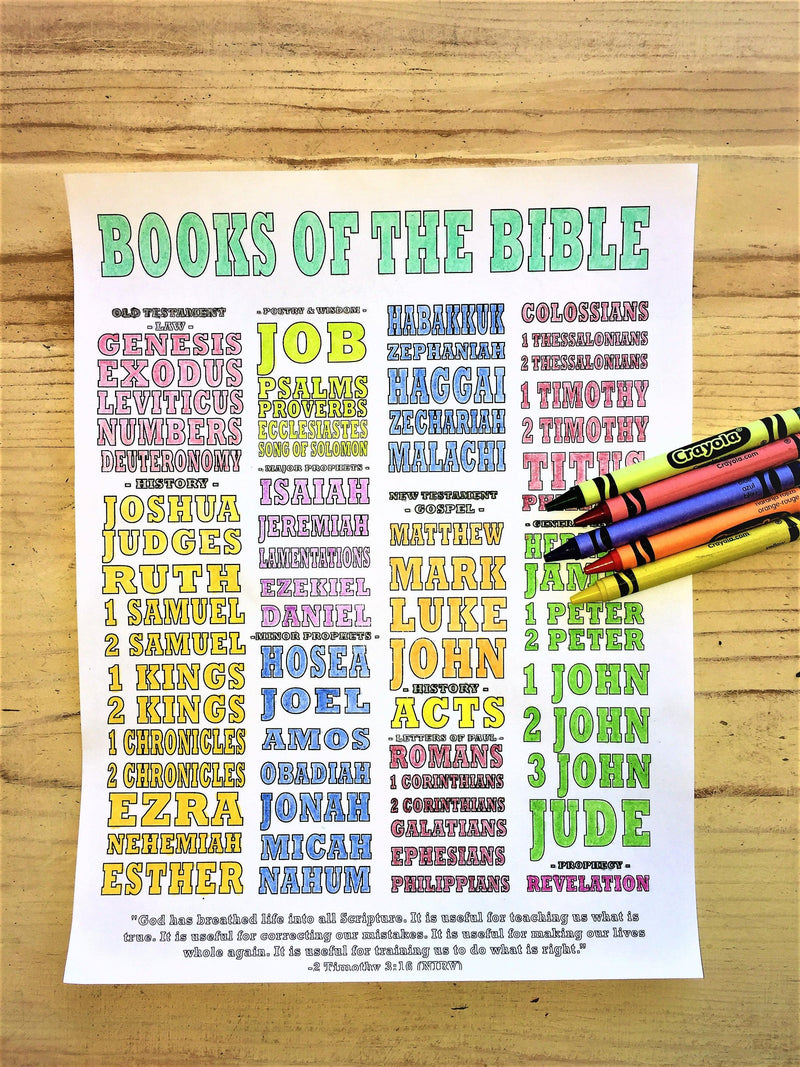 BOOKS OF THE BIBLE
OLD TESTAMENT
- LAW -
GENESIS
EXODUS
LEVITICUS
NUMBERS
DEUTERONOMY
- HISTORY -
JOSHUA
JUDGES
RUTH
1 SAMUEL
2 SAMUEL
1 KINGS
2 KINGS
1 CHRONICLES
2 CHRONICLES
EZRA
NEHEMIAH
ESTHER
- POETRY & WISDOM -
JOB
PSALMS
PROVERBS
ECCLESIASTES
SONG OF SOLOMON
- MAJOR PROPHETS -
ISAIAH
JEREMIAH
LAMENTATIONS
EZEKIEL
DANIEL
-MINOR PROPHETS -
HOSEA
JOEL
AMOS
OBADIAH
JONAH
MICAH
NAHUM
HABAKKUK
ZEPHANIAH
HAGGAI
ZECHARIAH
MALACHI
NEW TESTAMENT
- GOSPEL -
MATTHEW
MARK
LUKE
JOHN
- HISTORY -
ACTS
- LETTERS OF PAUL -
ROMANS
1 CORINTHIANS
2 CORINTHIANS
GALATIANS
EPHESIANS
PHILIPPIANS
COLOSSIANS
1 THESSALONIANS
2 THESSALONIANS
1 TIMOTHY
2 TIMOTHY
TITUS
1 PETER
2 PETER
1 JOHN
2 JOHN
3 JOHN
JUDE
- PROPHECY -
REVELATION
"God has breathed life into all Scripture. It is useful for teaching us what is
true. It is useful for correcting our mistakes. It is useful for making our lives
whole again. It is useful for training us to do what is right."
-2 Timothy 3:16 (NIRV)
Crayola
Crayola.com
azul
orange-rouge
Crayola.com